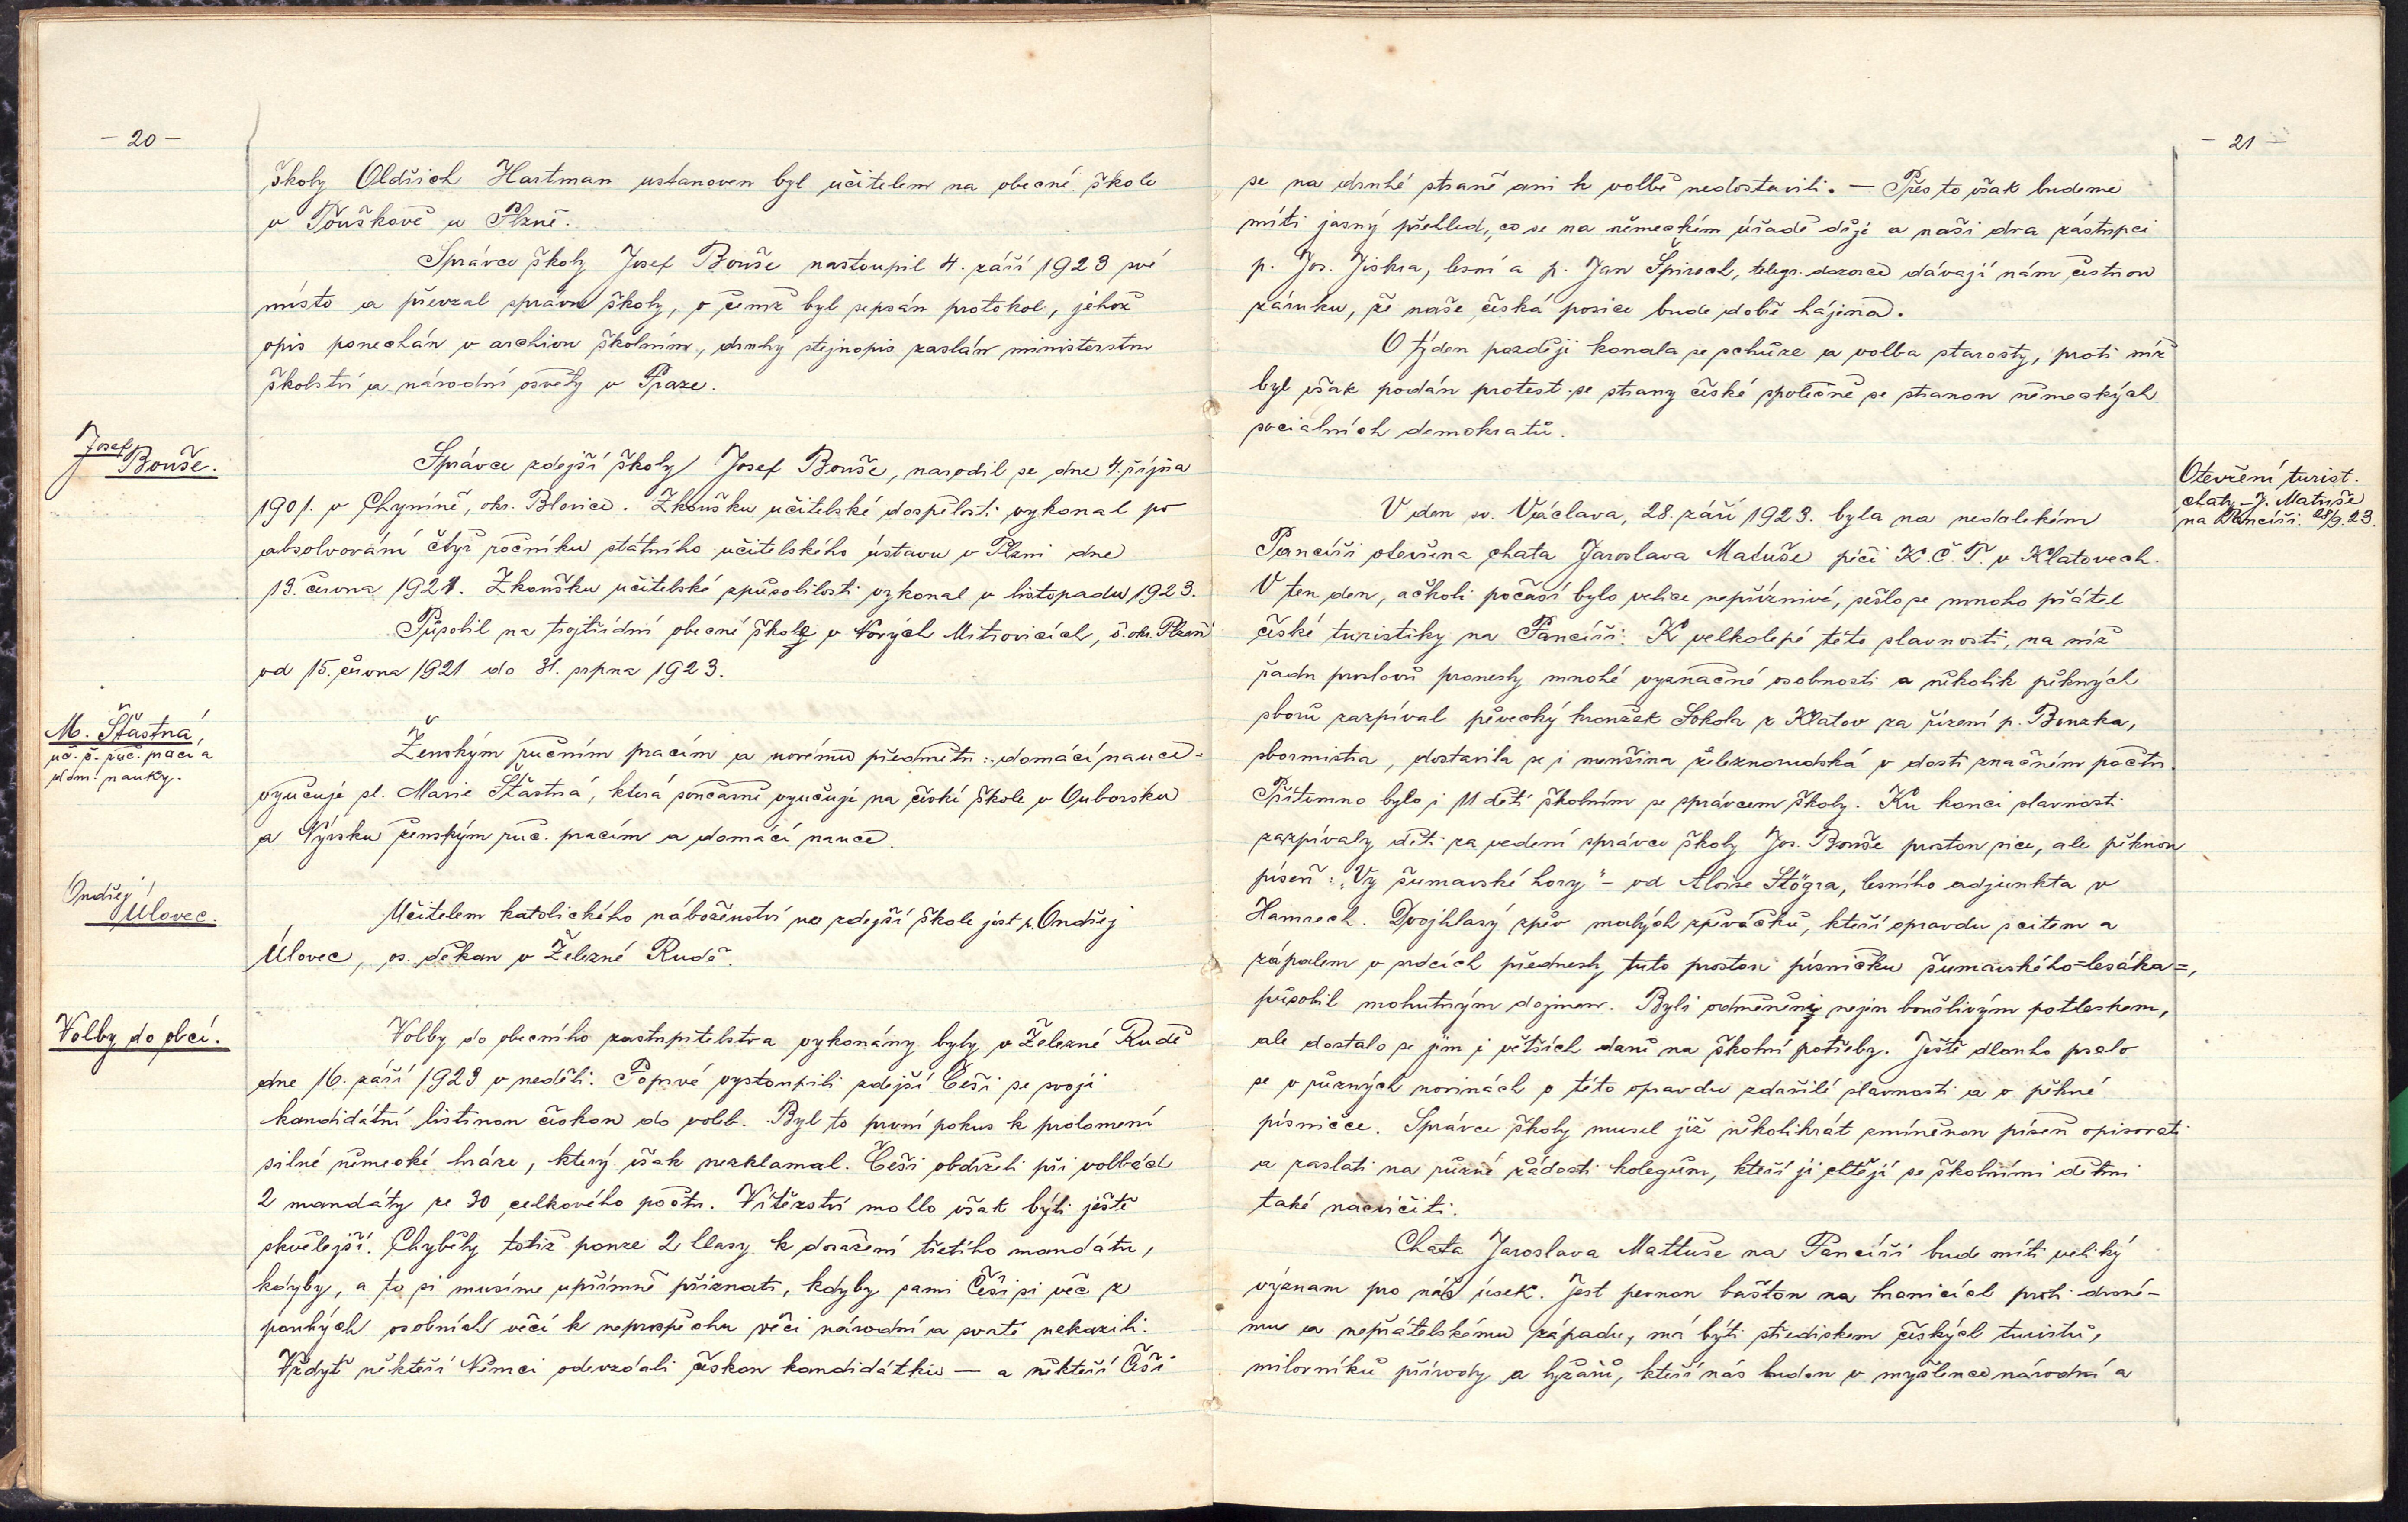 - 20 -
školy Oldřich Hartman ustanoven byl učitelem na obecné škole
v Touškově u Plzně.
Správce školy Josef Bouše nastoupil 4. září 1923 své
místo a převzal správu školy, o čemž byl sepsán protokol, jehož
opis ponechán v archivu školním, druhý stejnopis zaslán ministerstvu
školství a národní osvěty v Praze.
Josef
Bouše.
Správce zdejší školy Josef Bouše, narodil se dne 4. října
1901. v Chyníně, okr. Blovice. Zkoušku učitelské dospělosti vykonal po
absolvování čtyř ročníku státního učitelského ústavu v Plzni dne
13. června 1921. Zkoušku učitelské způsobilosti vykonal v listopadu 1923.
Působil na trojtřídní obecné školy v Nových Mitrovicích, š. okr. Plzeň
od 15. června 1921 do 31. srpna 1923.
M. Šťastná
uč. ž. ruč. prací a
dom. nauky.
Ženským ručním pracím a novému předmětu: domácí nauce -
vyučuje sl. Marie Šťastná, která současně vyučuje na české škole v Ouborsku
a Nýrsku ženským ruč. pracím a domácí nauce.
Ondřej
Úlovec.
Učitelem katolického náboženství na zdejší škole jest p. Ondřej
Úlovec, os. děkan v Železné Rudě.
Volby do obcí.
Volby do obecního zastupitelstva vykonány byly v Železné Rudě
dne 16. září 1923 v neděli. Poprvé vystoupili zdejší Češi se svojí
kandidátní listinou českou do voleb. Byl to první pokus k prolomení
silné německé hráze, který však nezklamal. Češi obdrželi při volbách
2 mandáty ze 30 celkového počtu. Vítězství mohlo však býti ještě
skvělejší. Chyběly totiž pouze 2 hlasy k doražení třetího mandátu,
kdyby, a to si musíme upřímně přiznati, kdyby sami Češi si věc z
pouhých osobních věcí k neprospěchu věci národní a svaté nekazili.
Vždyť někteří Němci odevzdali českou kandidátku — a někteří Češi
- 21 -
se na druhé straně ani k volbě nedostavili. — Přes to však budeme
míti jasný přehled, co se na německém úřadě děje a naši dva zástupci
p. Jos. Jiskra, lesní a p. Jan Špirech, telegr. dozorce dávají nám čestnou
záruku, že naše česká posice bude dobře hájena.
O týden později konala se schůze a volba starosty, proti níž
byl však podán protest se strany české společně se stranou německých
socialních demokratů.
Otevření turist.
chaty J. Matuše
na Pancíři. 28/9. 23.
V den sv. Václava, 28. září 1923. byla na nedalekém
Pancíři otevřena chata Jaroslava Matuše péčí K. Č. T. v Klatovech.
V ten den, ačkoli počasí bylo velice nepříznivé, sešlo se mnoho přátel
české turistiky na Pancíři. K velkolepé této slavnosti, na níž
řadu proslovů pronesly mnohé význačné osobnosti a několik pěkných
sborů zazpíval pěvecký kroužek Sokola z Klatov za řízení p. Bouzka,
sbormistra, dostavila se i menšina železnorudská v dosti značném počtu.
Přítomno bylo i 11 dětí školním se správcem školy. Ku konci slavnosti
zazpívaly děti za vedení správce školy Jos. Bouše prostou sice, ale pěknou
píseň: „Vy šumavské hory" - od Aloise Stögra, lesního adjunkta v
Hamrech. Dvojhlasý zpěv malých zpěváčků, kteří opravdu s citem a
zápalem v srdcích přednesly tuto prostou písničku šumavského=lesáka=,
působil mohutným dojmem. Byli odměněni nejen bouřlivým potleskem,
ale dostalo se jim i větších darů na školní potřeby. Ještě dlouho psalo
se v různých novinách o této opravdu zdařilé slavnosti a o pěkné
písničce. Správce školy musel již několikrát zmíněnou píseň opisovati
a zaslati na různé žádosti kolegům, kteří ji chtějí se školními dětmi
také nacvičiti.
Chata Jaroslava Mattuše na Pancíři bude míti veliký
význam pro náš úsek. Jest pevnou baštou na hranicích proti drsné-
mu a nepřátelskému západu, má býti střediskem českých turistů,
milovníků přírody a lyžařů, kteří nás budou v myšlence národní a